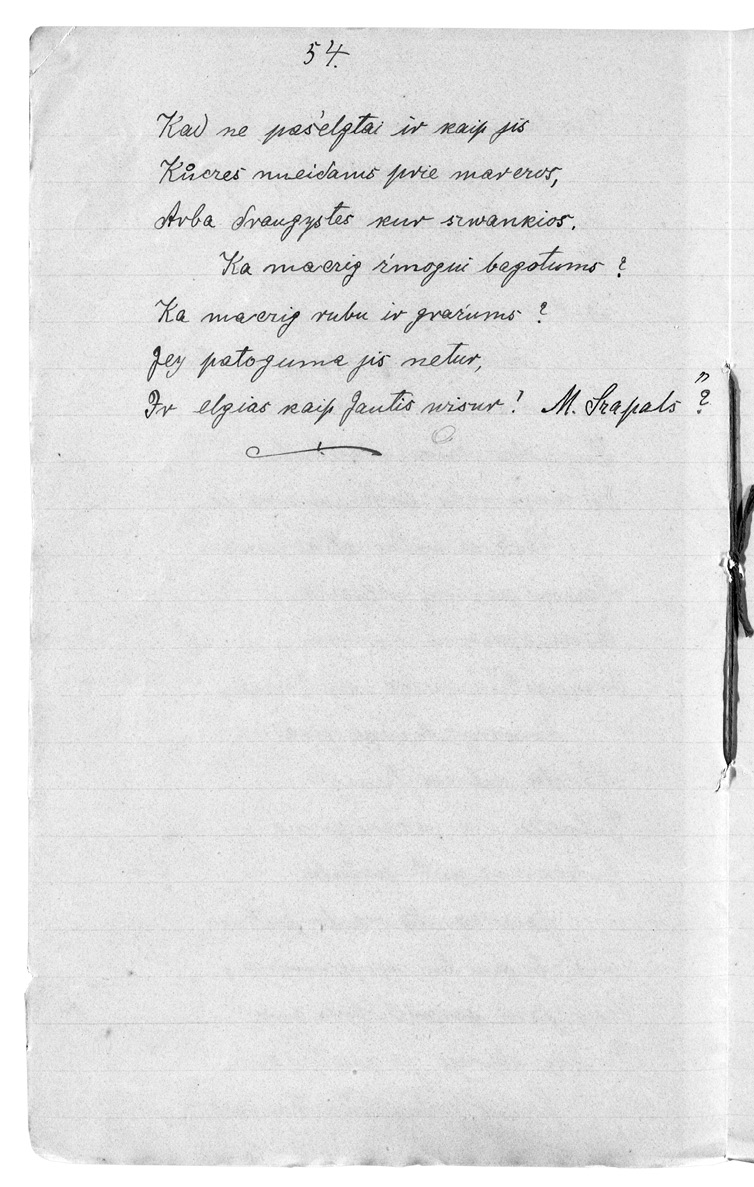 54.
Kad ne pasʼelgtai ir kaip jis
Kůcres nueidams prie marcros,
Arba draugystes kur srwankios.
Ka macrig rʼmogui bagotums ?
Ka macrig rubu ir grarʼums ?
Jey patoguma jis netur,
Ir elgias kaip Jautis wisur ! M. Srapals " ?